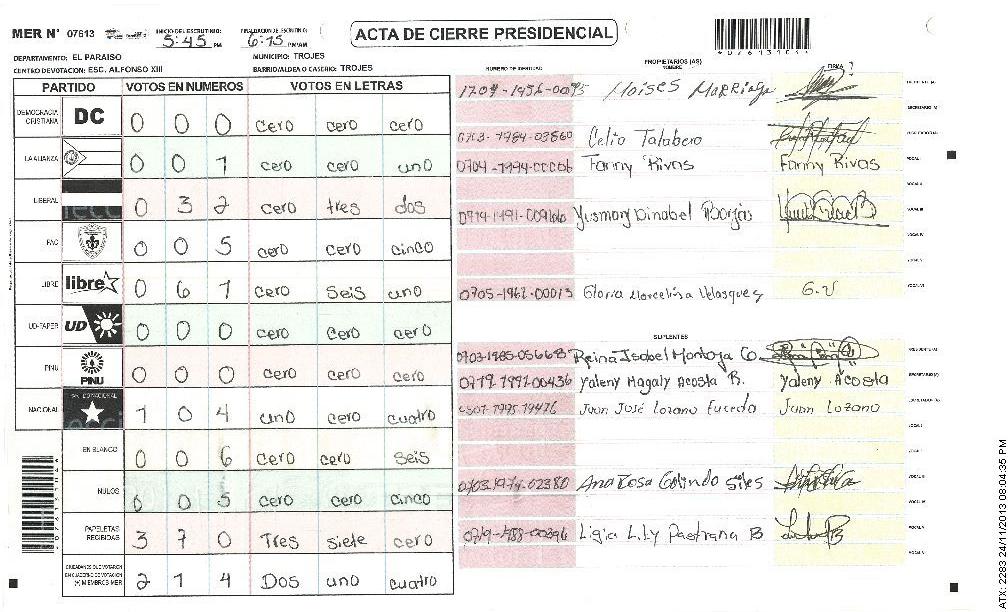 MER N° 07613
INICIO DEL ESCRUTINIO: 5:45 PM
FINALIZACION DE ESCRUTINIO: 6:15 PM/AM
ACTA DE CIERRE PRESIDENCIAL
DEPARTAMENTO: EL PARAISO
MUNICIPIO: TROJES
CENTRO DE VOTACION: ESC. ALFONSO XIII
BARRIO/ALDEA O CASERIO: TROJES
PARTIDO VOTOS EN NUMEROS VOTOS EN LETRAS
DEMOCRACIA CRISTIANA DC 0 0 0 cero cero cero
LA ALIANZA 0 0 1 cero cero uno
LIBERAL 0 3 2 cero tres dos
PAC 0 0 5 cero cero cinco
LIBRE libre 0 6 1 cero seis uno
UD-FAPER UD 0 0 0 cero cero cero
PINU PINU 0 0 0 cero cero cero
NACIONAL 1 0 4 uno cero cuatro
EN BLANCO 0 0 6 cero cero seis
NULOS 0 0 5 cero cero cinco
PAPELETAS RECIBIDAS 3 7 0 Tres siete cero
CIUDADANOS QUE VOTARON EN CUADERNO DE VOTACION (+) MIEMBROS MER 2 1 4 Dos uno cuatro
NUMERO DE IDENTIDAD
PROPIETARIOS (AS)
NOMBRE
FIRMA
Moises
Celio Talabera
0704-1994-00006 Fanny Rivas Fanny Rivas
Yusmary Dinabel Borjas
0705-1962-00013 Gloria Marcelina Velasquez G.V
SUPLENTES
0703-1985-05668 Reina Isabel Montoya Co.
0719-1991-00436 Yaleny Magaly Acosta B. Yaleny Acosta
Juan José Lozano Juan Lozano
0703-1974-02380 Ana Rosa Galindo
Ligia Lily Pastrana B
ATX: 2283 24/11/2013 08:04:35 PM